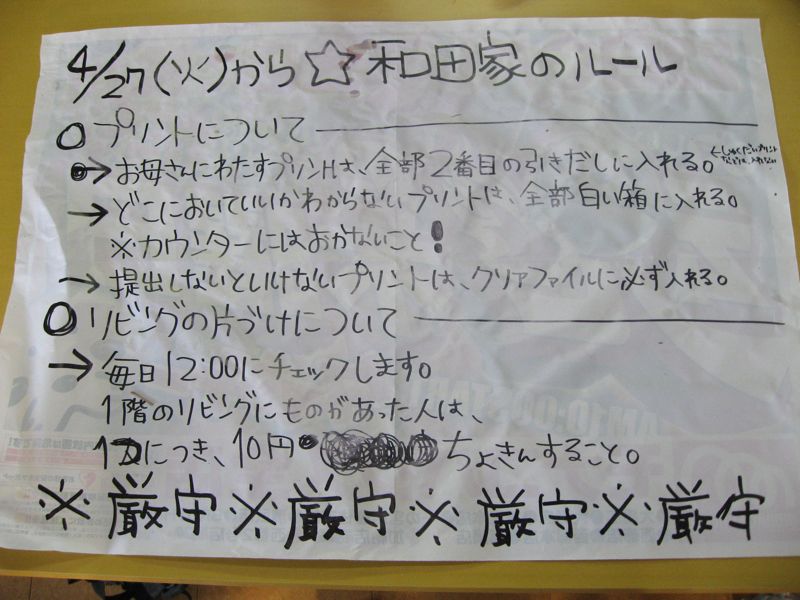 4/27(火)から☆和田家のルール
○プリントについて
→お母さんにわたすプリントは、全部2番目の引きだしに入れる。
←しゅくだいプリント
などは、入れない
→どこにおいていいかわからないプリントは、全部白い箱に入れる。
※カウンターにはおかないこと!
→提出しないといけないプリントは、クリアファイルに必ず入れる。
○リビングの片づけについて
→毎日12:00にチェックします。
1階のリビングにものがあった人は、
1つにつき、10円ちょきんすること。
※厳守※厳守※厳守※厳守